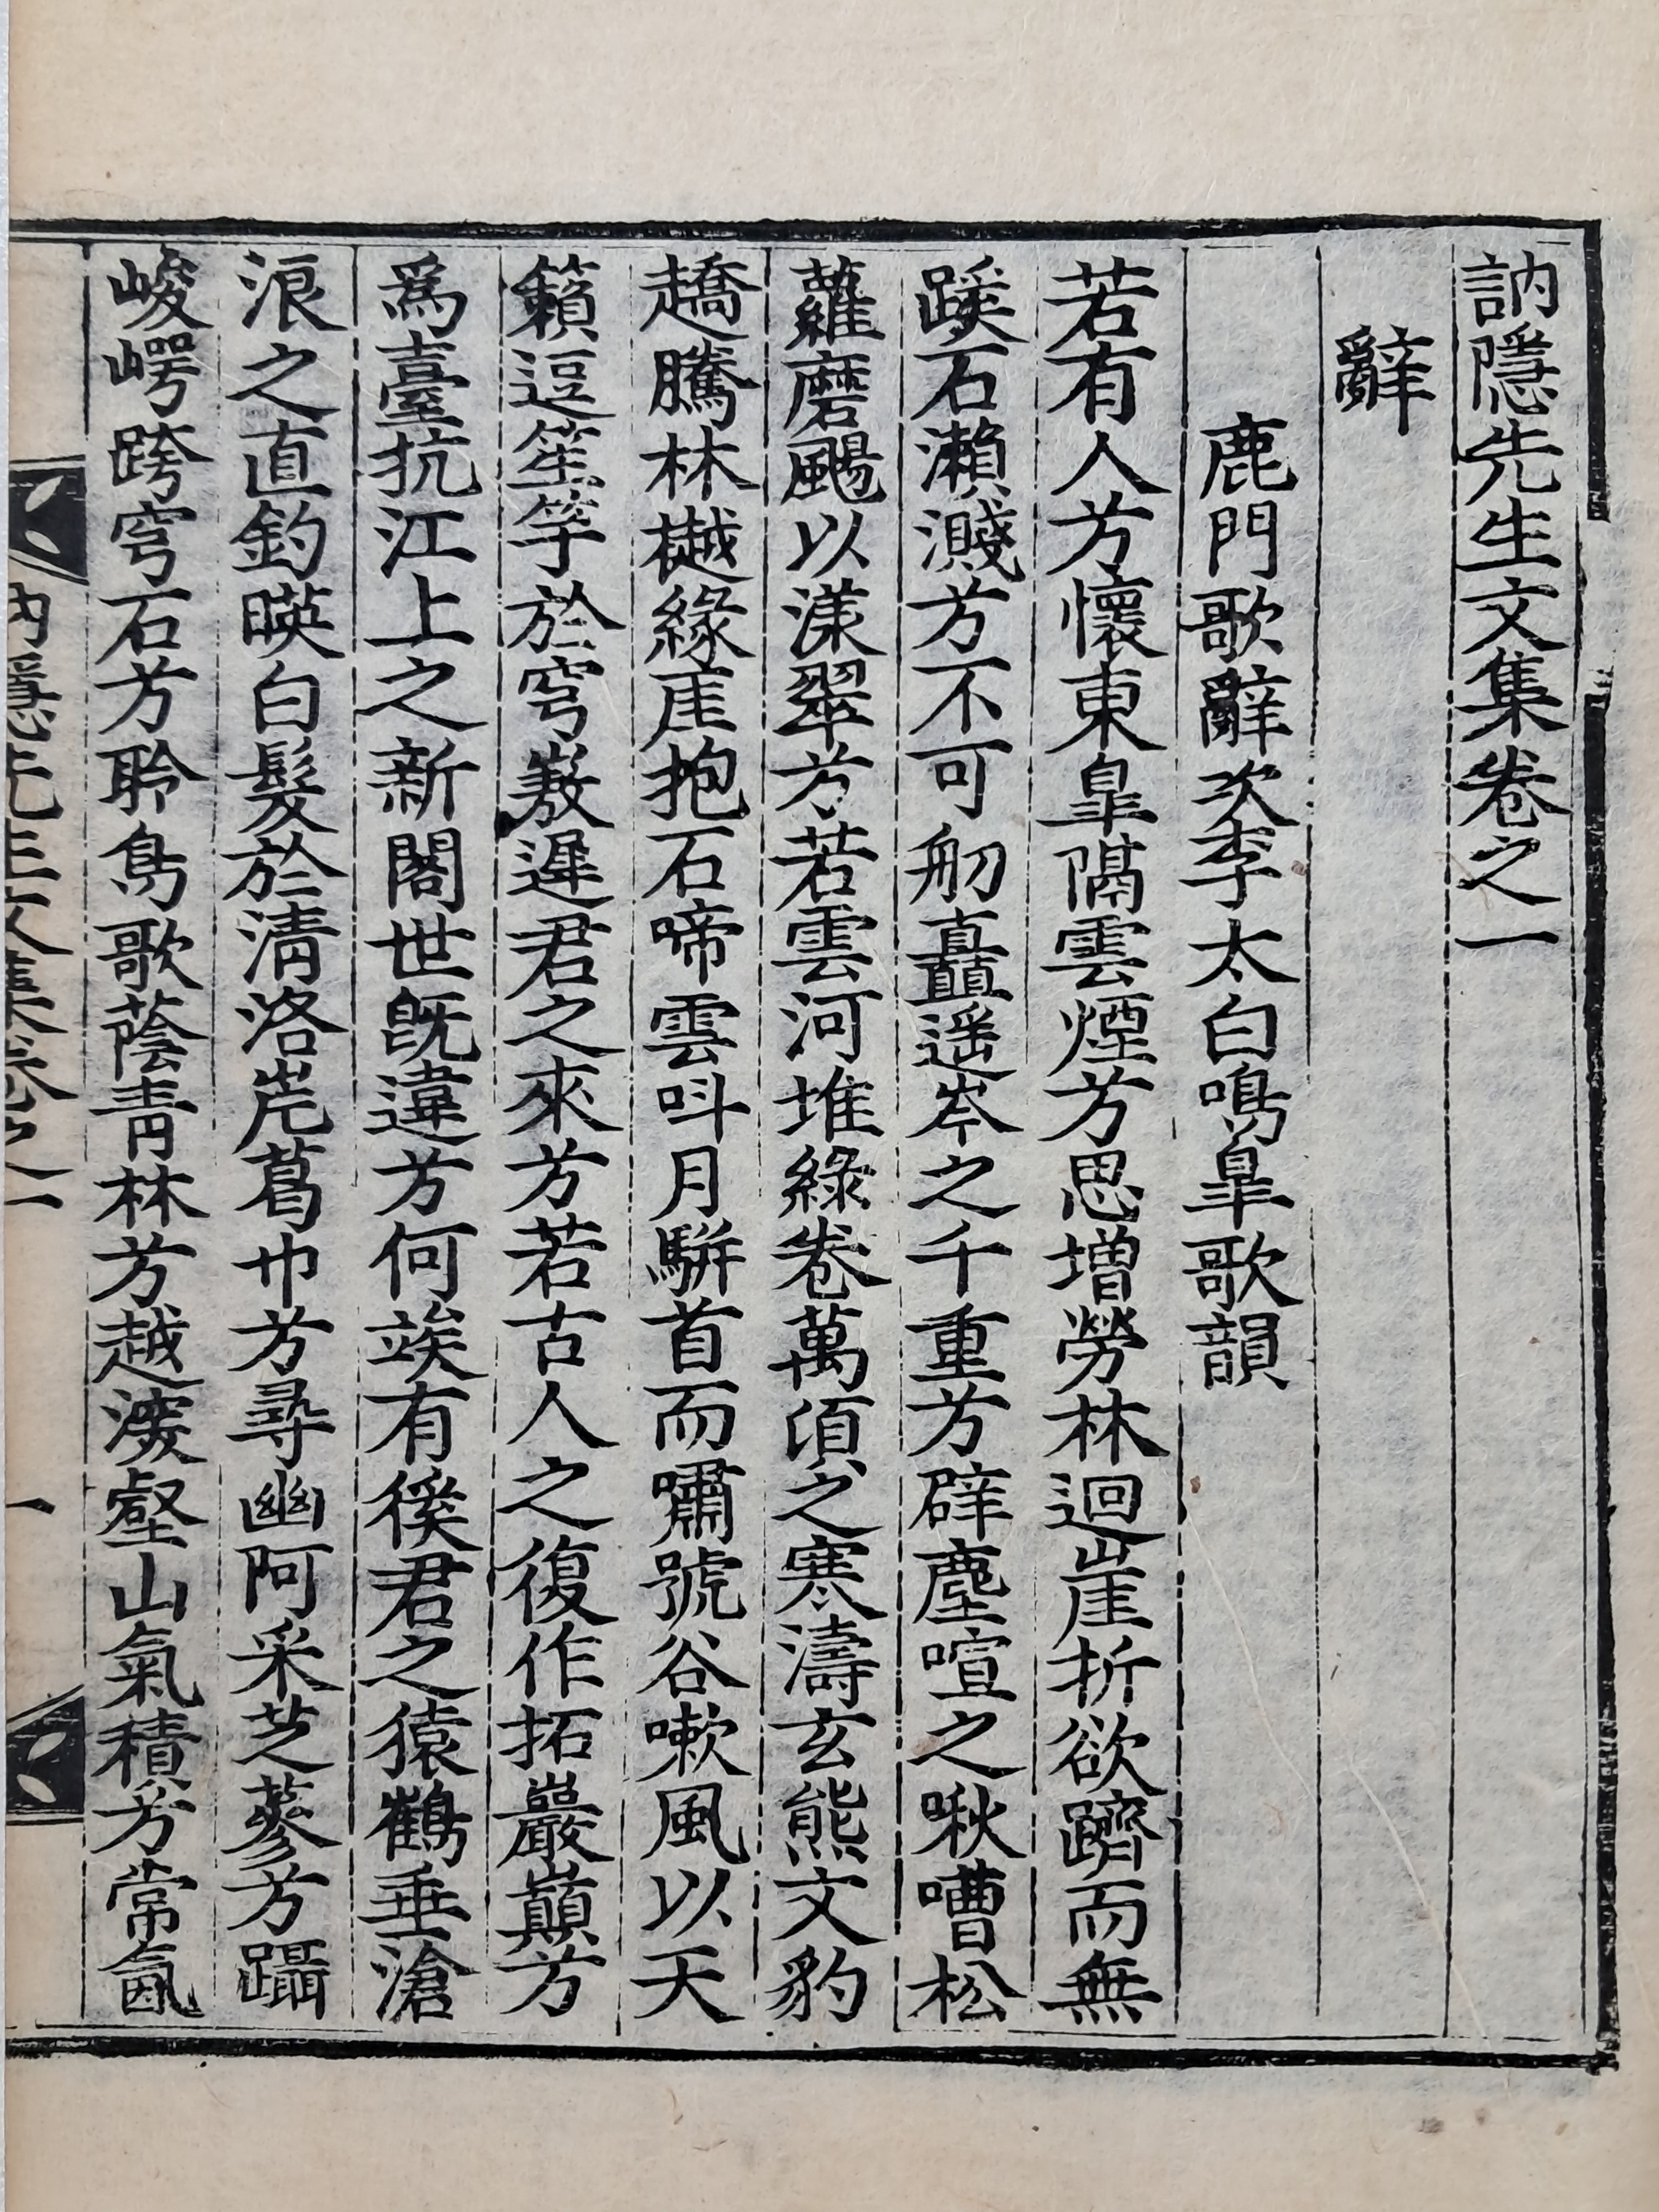 訥隱先生文集卷之一
辭
鹿門歌辭次李太白鳴皐歌韻
若有人兮懷東皐隔雲煙兮思增勞林迴崖折欲躋而無
蹊石瀨濺兮不可舠矗遥岑之千重兮辟塵喧之啾嘈松
蘿磨颺以漾翠兮若雲河堆綠卷萬頃之寒濤玄熊文豹
趫騰林樾緣崖抱石啼雲叫月騈首而嘯號谷嗽風以天
籟逗笙竽於穹嶅遲君之來兮若古人之復作拓巖巔兮
爲臺抗江上之新閣世旣違兮何竢有徯君之猿鶴垂滄
浪之直釣暎白髮於淸洛岸葛巾兮尋幽阿采芝蔘兮躡
峻崿跨穹石兮聆鳥歌蔭靑林兮越濙壑山氣積兮常氤
訥隱先生文集卷之一
一